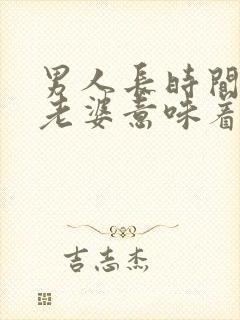 男人長時間
老婆意味着
吉志杰